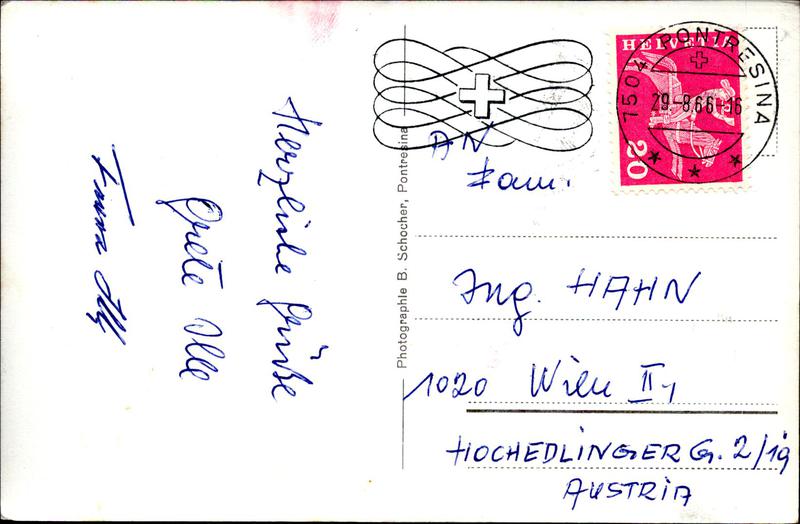 Herzliche Grüße
Grete Olle
Franz
Photographie B. Schocher, Pontresina
HELVETIA
20
7504 PONTRESINA
29.-8.66-16
AN
Fam.
Ing. HAHN
1020 Wien II,
HOCHEDLINGER G. 2/19
AUSTRIA